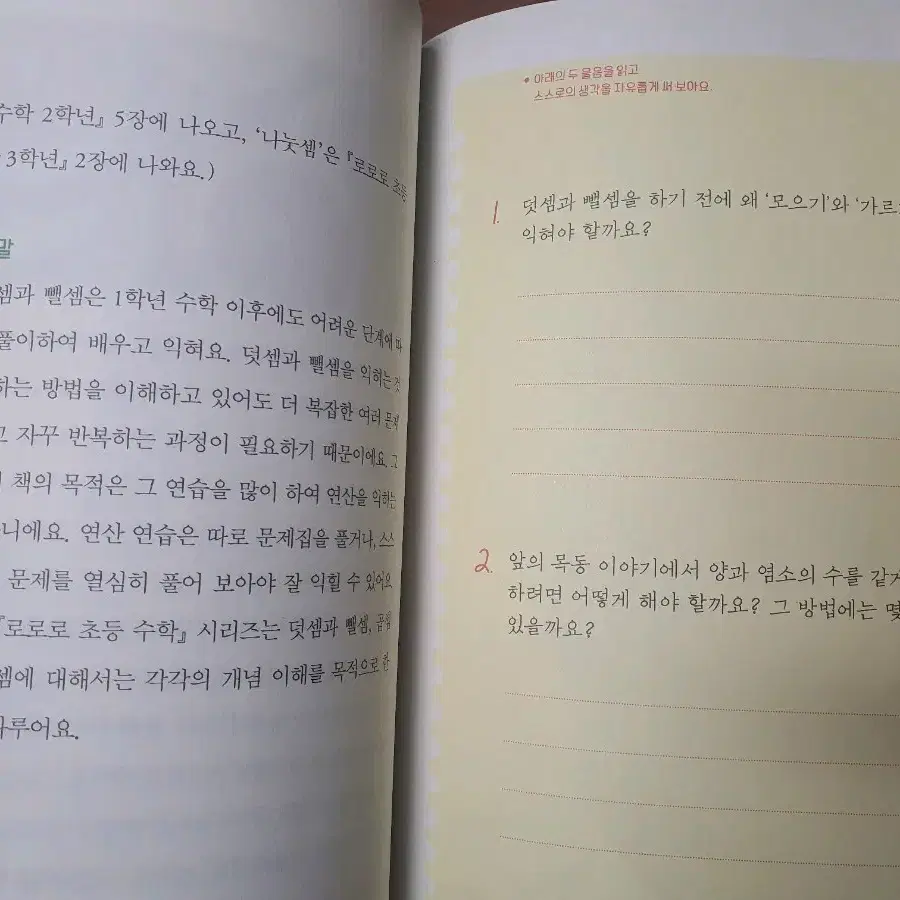 수학 2학년』 5장에 나오고, ‘나눗셈’은 『로로로 초등
3학년』 2장에 나와요.)
말
셈과 뺄셈은 1학년 수학 이후에도 어려운 단계에 따
풀이하여 배우고 익혀요. 덧셈과 뺄셈을 익히는 것
하는 방법을 이해하고 있어도 더 복잡한 여러 문제
고 자꾸 반복하는 과정이 필요하기 때문이에요. 그
책의 목적은 그 연습을 많이 하여 연산을 익히는
니에요. 연산 연습은 따로 문제집을 풀거나, 스스
문제를 열심히 풀어 보아야 잘 익힐 수 있어요.
『로로로 초등 수학』 시리즈는 덧셈과 뺄셈, 곱셈
셈에 대해서는 각각의 개념 이해를 목적으로 한
다루어요.
• 아래의 두 물음을 읽고
스스로의 생각을 자유롭게 써 보아요.
1. 덧셈과 뺄셈을 하기 전에 왜 ‘모으기’와 ‘가르
익혀야 할까요?
2. 앞의 목동 이야기에서 양과 염소의 수를 같게
하려면 어떻게 해야 할까요? 그 방법에는 몇
있을까요?